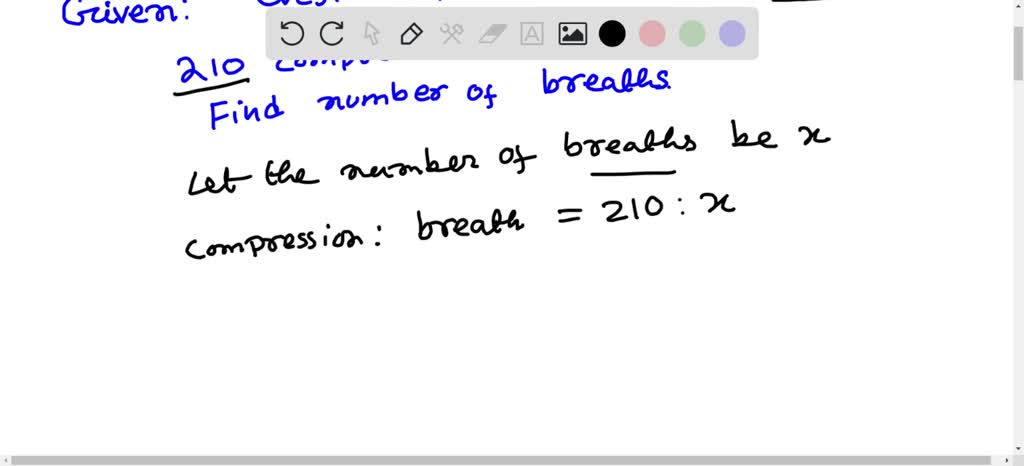 Given:
210
Find number of breaths.
Let the number of breaths be x
compression: breath = 210 : x